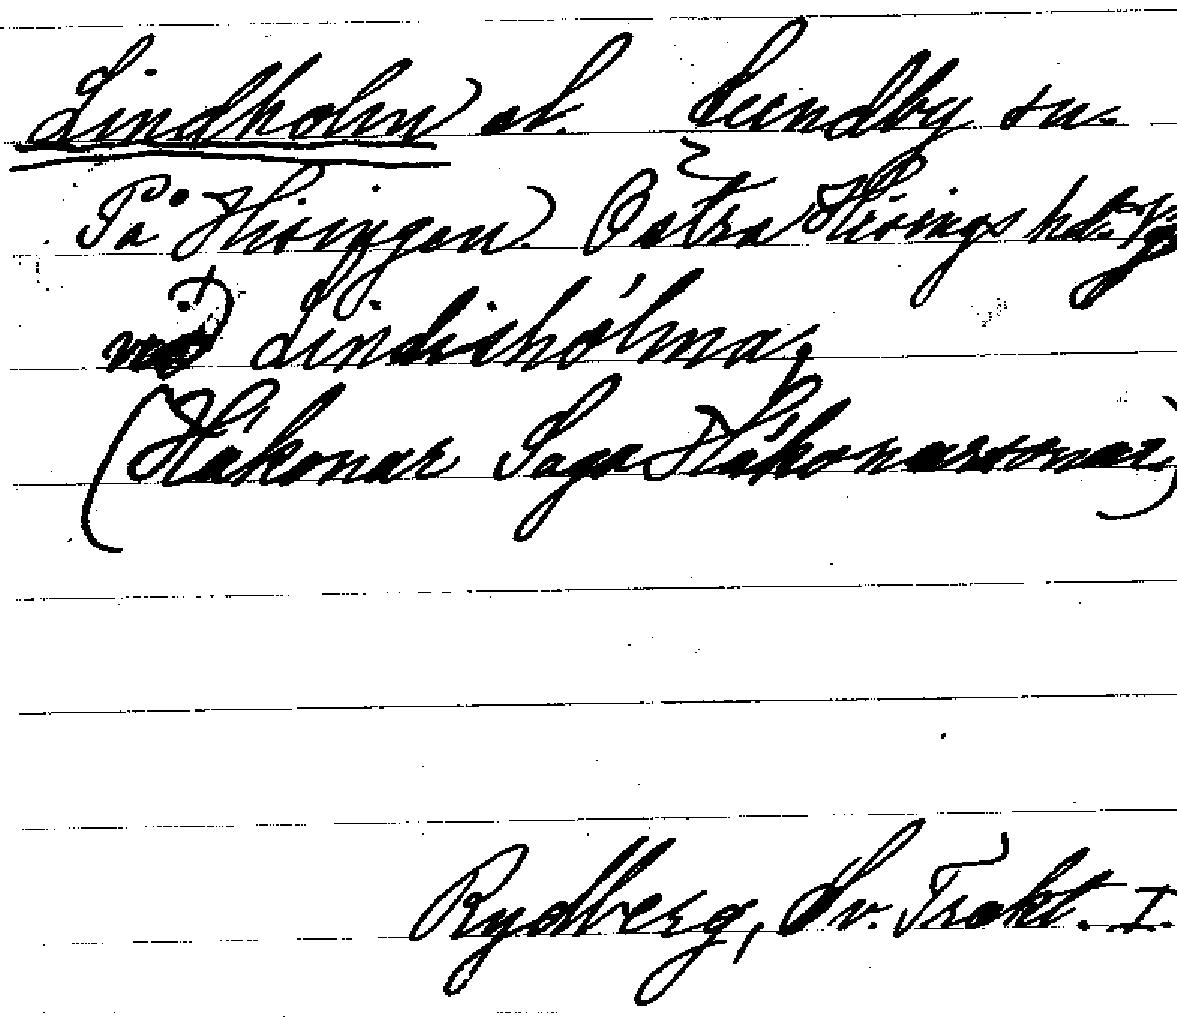 Lindholm sl. Lundby sn.
På Hisingen. Östra Hisings hd. Vg
við Lindishólma,
(Hákonar Saga Hákonarsonar)
Rydberg, Sv. Trakt. I.